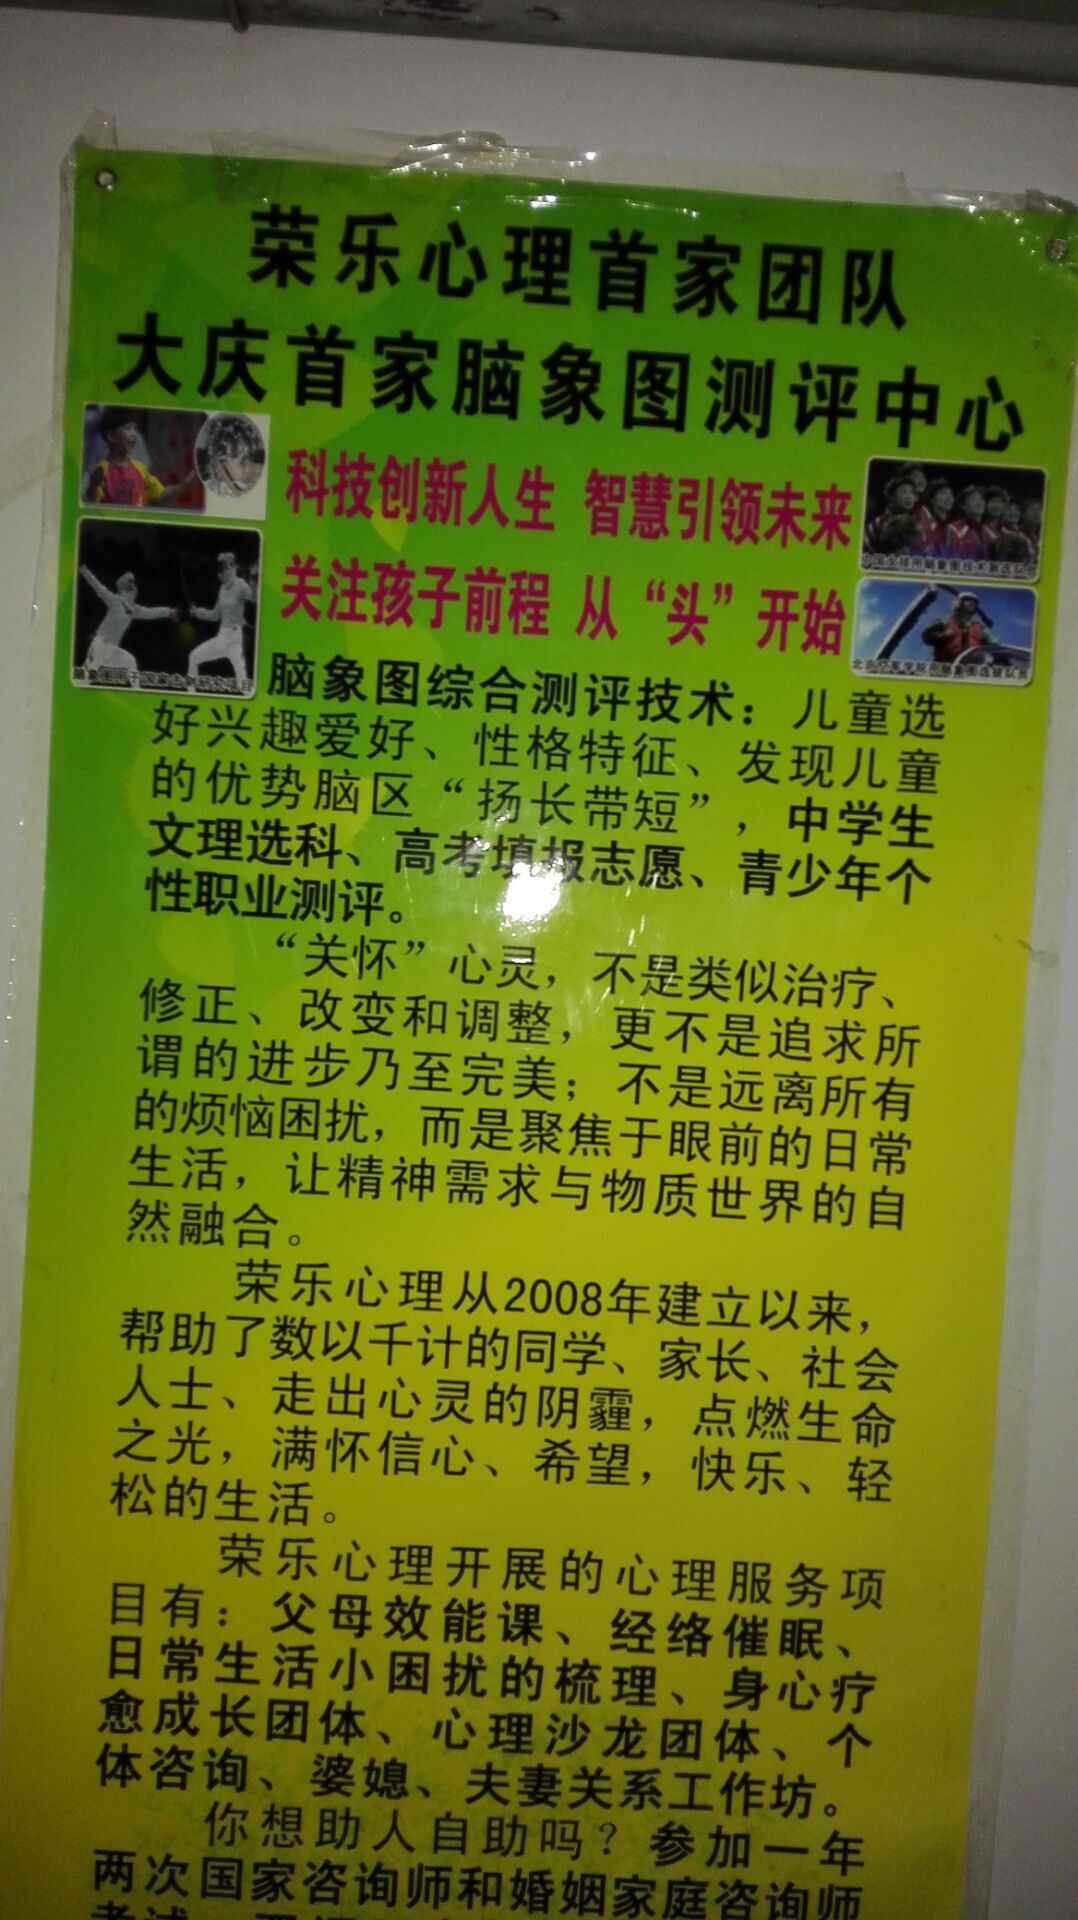 荣乐心理首家团队
大庆首家脑象图测评中心
科技创新人生 智慧引领未来
关注孩子前程 从“头”开始
中国女排用脑象图技术测选队员
脑象图用于国家击剑研究项目
北京空军学院用脑象图选拔队员
脑象图综合测评技术：儿童选
好兴趣爱好、性格特征、发现儿童
的优势脑区“扬长带短”，中学生
文理选科、高考填报志愿、青少年个
性职业测评。
“关怀”心灵，不是类似治疗、
修正、改变和调整，更不是追求所
谓的进步乃至完美；不是远离所有
的烦恼困扰，而是聚焦于眼前的日常
生活，让精神需求与物质世界的自
然融合。
荣乐心理从2008年建立以来，
帮助了数以千计的同学、家长、社会
人士、走出心灵的阴霾，点燃生命
之光，满怀信心、希望，快乐、轻
松的生活。
荣乐心理开展的心理服务项
目有：父母效能课、经络催眠、
日常生活小困扰的梳理、身心疗
愈成长团体、心理沙龙团体、个
体咨询、婆媳、夫妻关系工作坊。
你想助人自助吗？参加一年
两次国家咨询师和婚姻家庭咨询师